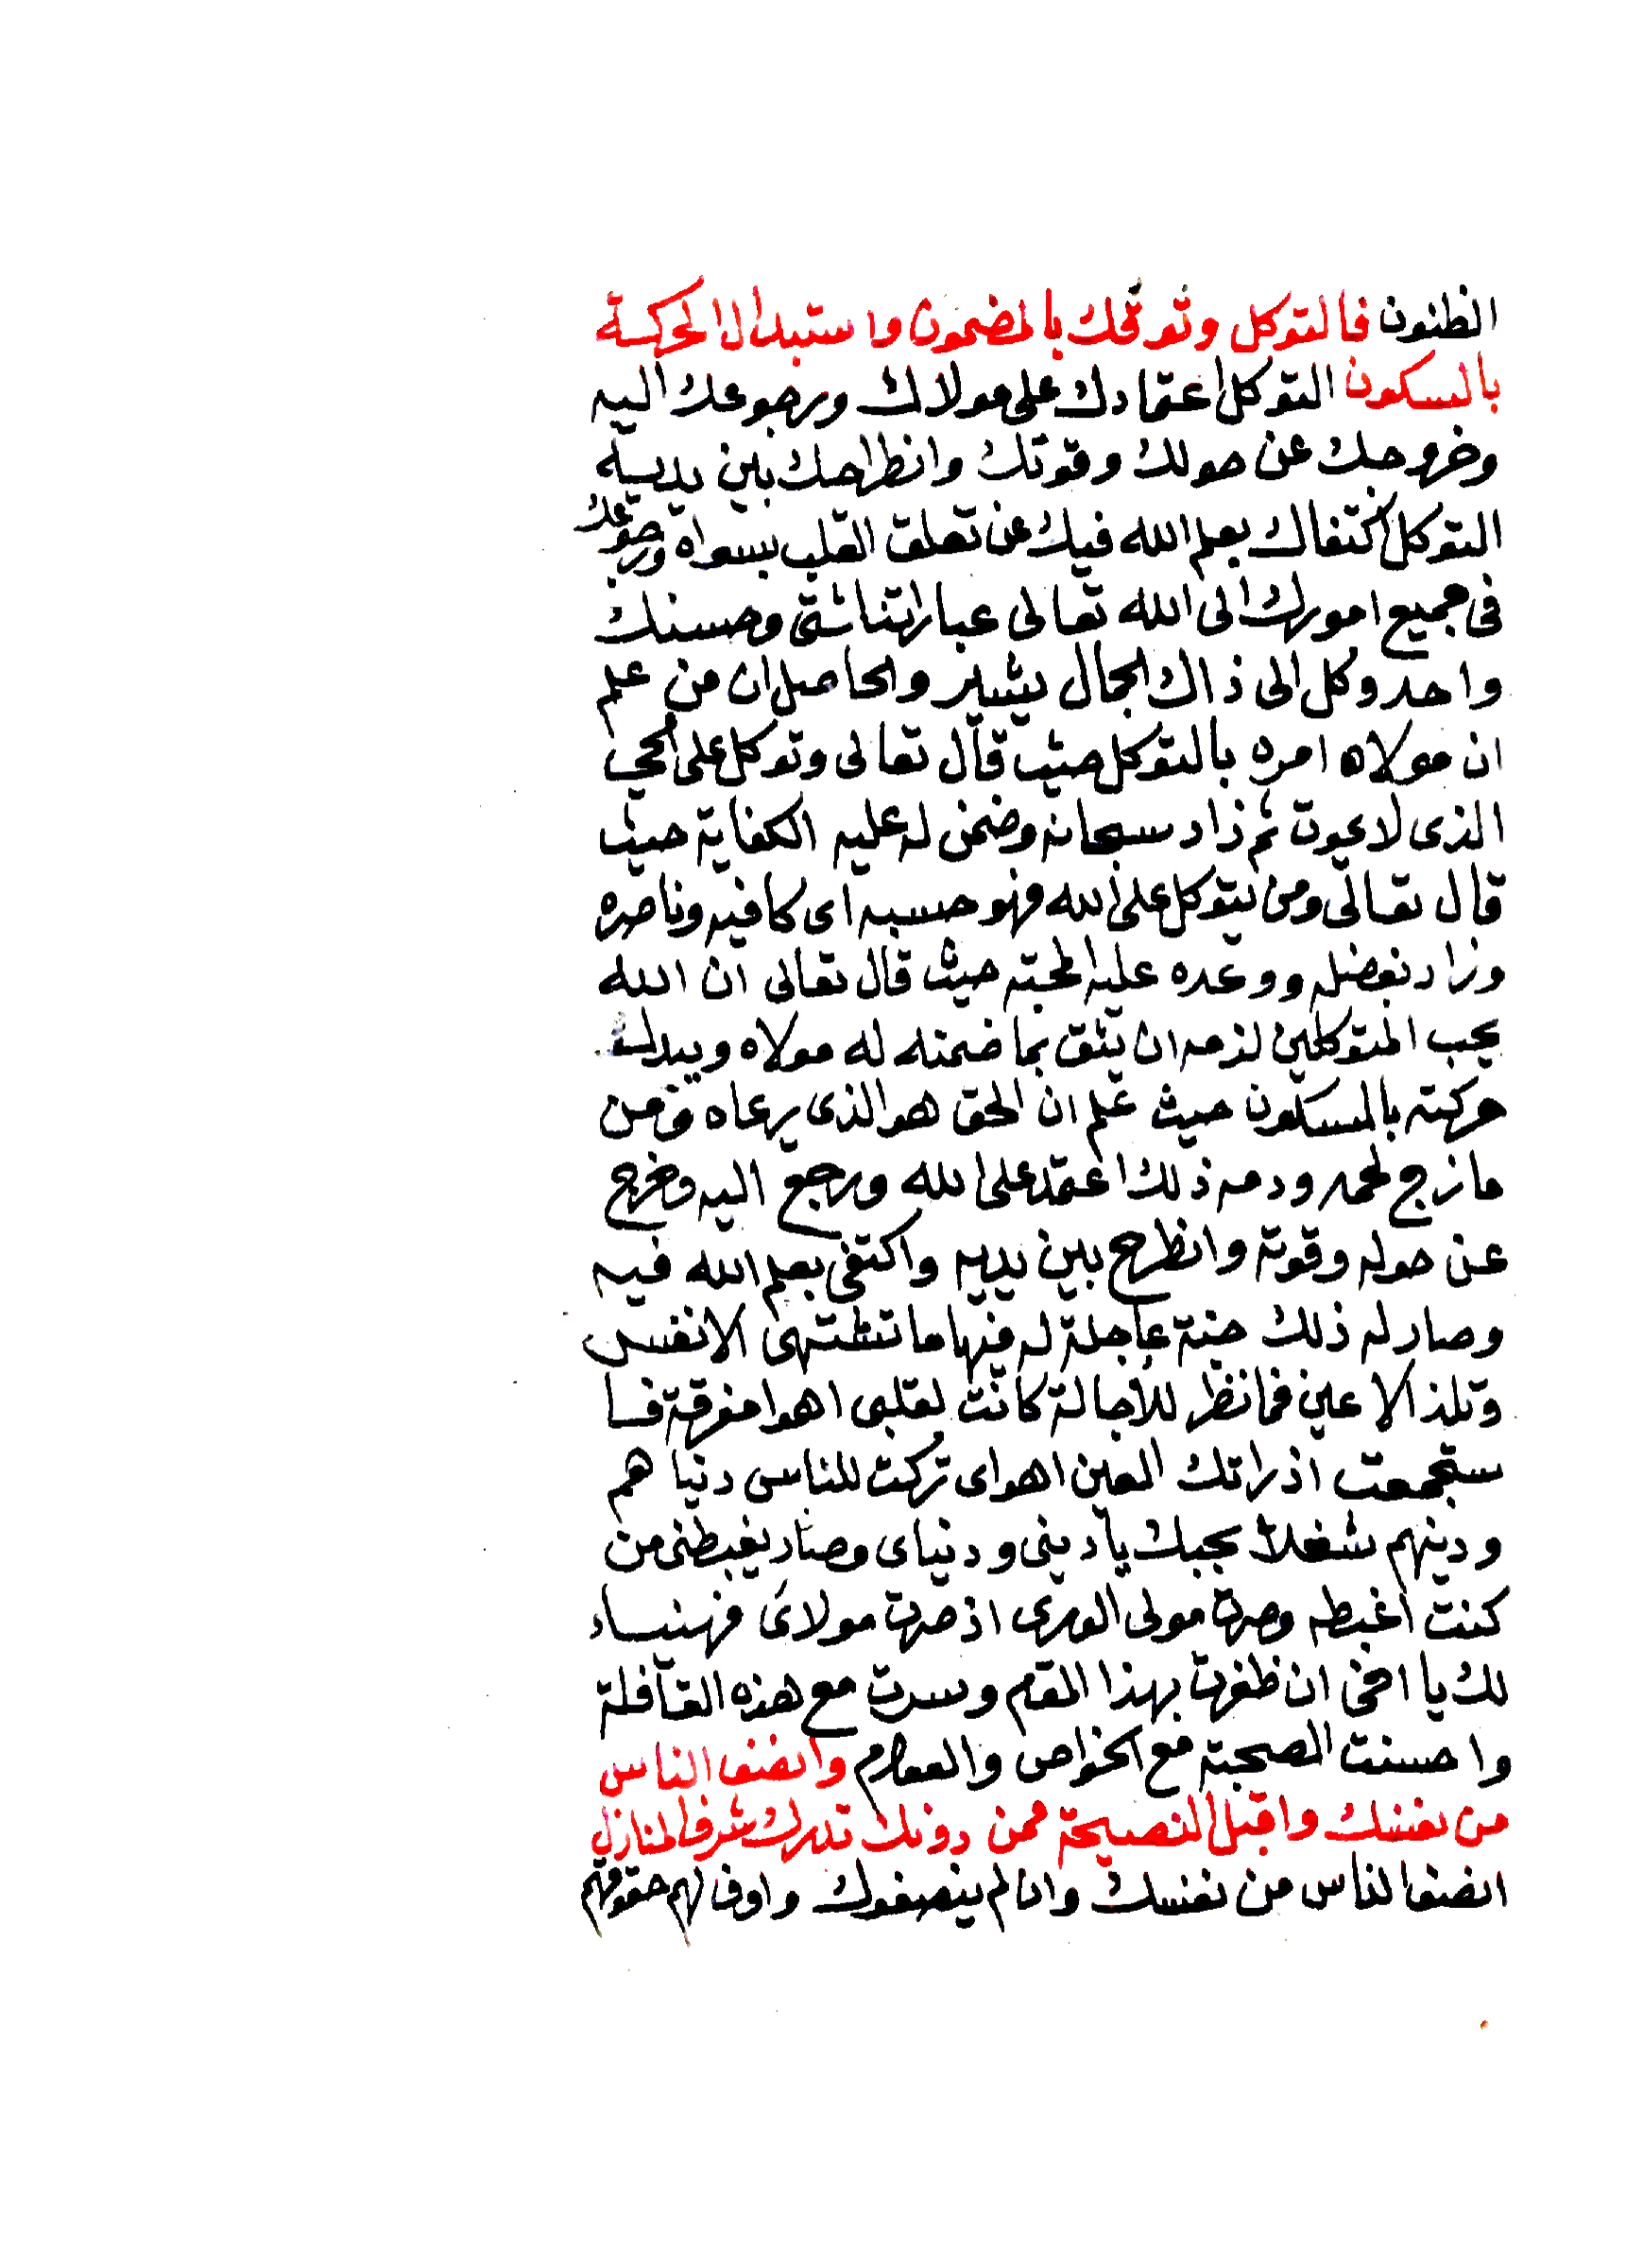 الظنون فالتوكل وثوقك بالمضمون واستبدال الحركة
بالسكون التوكل اعتمادك على مولاك ورجوعك اليه
وخروجك عن حولك وقوتك وانطراحك بين يديه
التوكل اكتفاك بعلم الله فيك عن تعلق القلب بسواه ورجوعك
فى جميع امورك الى الله تعالى عباراتنا شتى وحسنك
واحد وكل الى ذاك الجمال يشير والحاصل ان من علم
ان مولاه امره بالتوكل حيث قال تعالى وتوكل على الحي
الذى لا يموت ثم زاد سبحانه وضمن له عليه الكفاية حيث
قال تعالى ومن يتوكل على الله فهو حسبه اى كافيه وناصره
وزاد بفضله ووعده عليه المحبته حيث قال تعالى ان الله
يحب المتوكلين لزمه ان يثق بما ضمنه له مولاه ويبدل
حركته بالسكون حيث علم ان الحق هو الذى يرعاه ومن
مازج لحمه ودمه ذلك اعتمد على الله ورجع اليه وخرج
عن حوله وقوته وانطرح بين يديه واكتفى بعلم الله فيه
وصار له ذلك جنة عاجلة له فيها ما تشتهى الانفس
وتلذ الاعين فما نظر للأجالة كانت لقلبى اهوا مفرقة فا
ستجمعت اذ راتك العين اهواى تركت للناس دنيا هم
ودينهم شغلا بحبك يا دينى ودنياى وصار يغبطنى من
كنت أغبطه وصرت مولى الورى اذ صرت مولاى فهنيئاء
لك يا اخى ان ظفرت بهذا المقام وسرت مع هذه القافلة
واحسنت الصحبة مع الخواص والعوام وانصف الناس
من نفسك واقبل النصيحة ممن دونك تدرك شرف المنازل
انصف الناس من نفسك وان لم ينصفوك واوف لهم حقوقهم